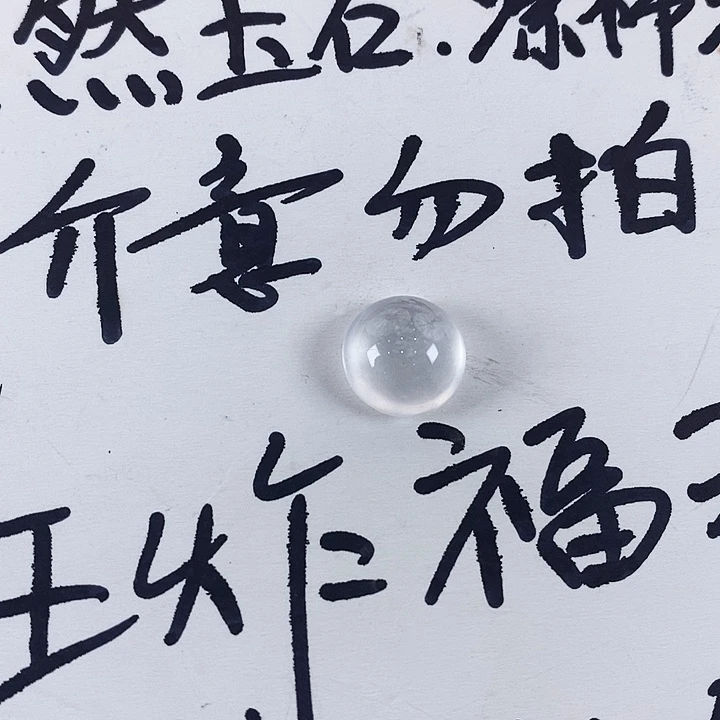 然玉石.凉种
介意勿拍
王炸福